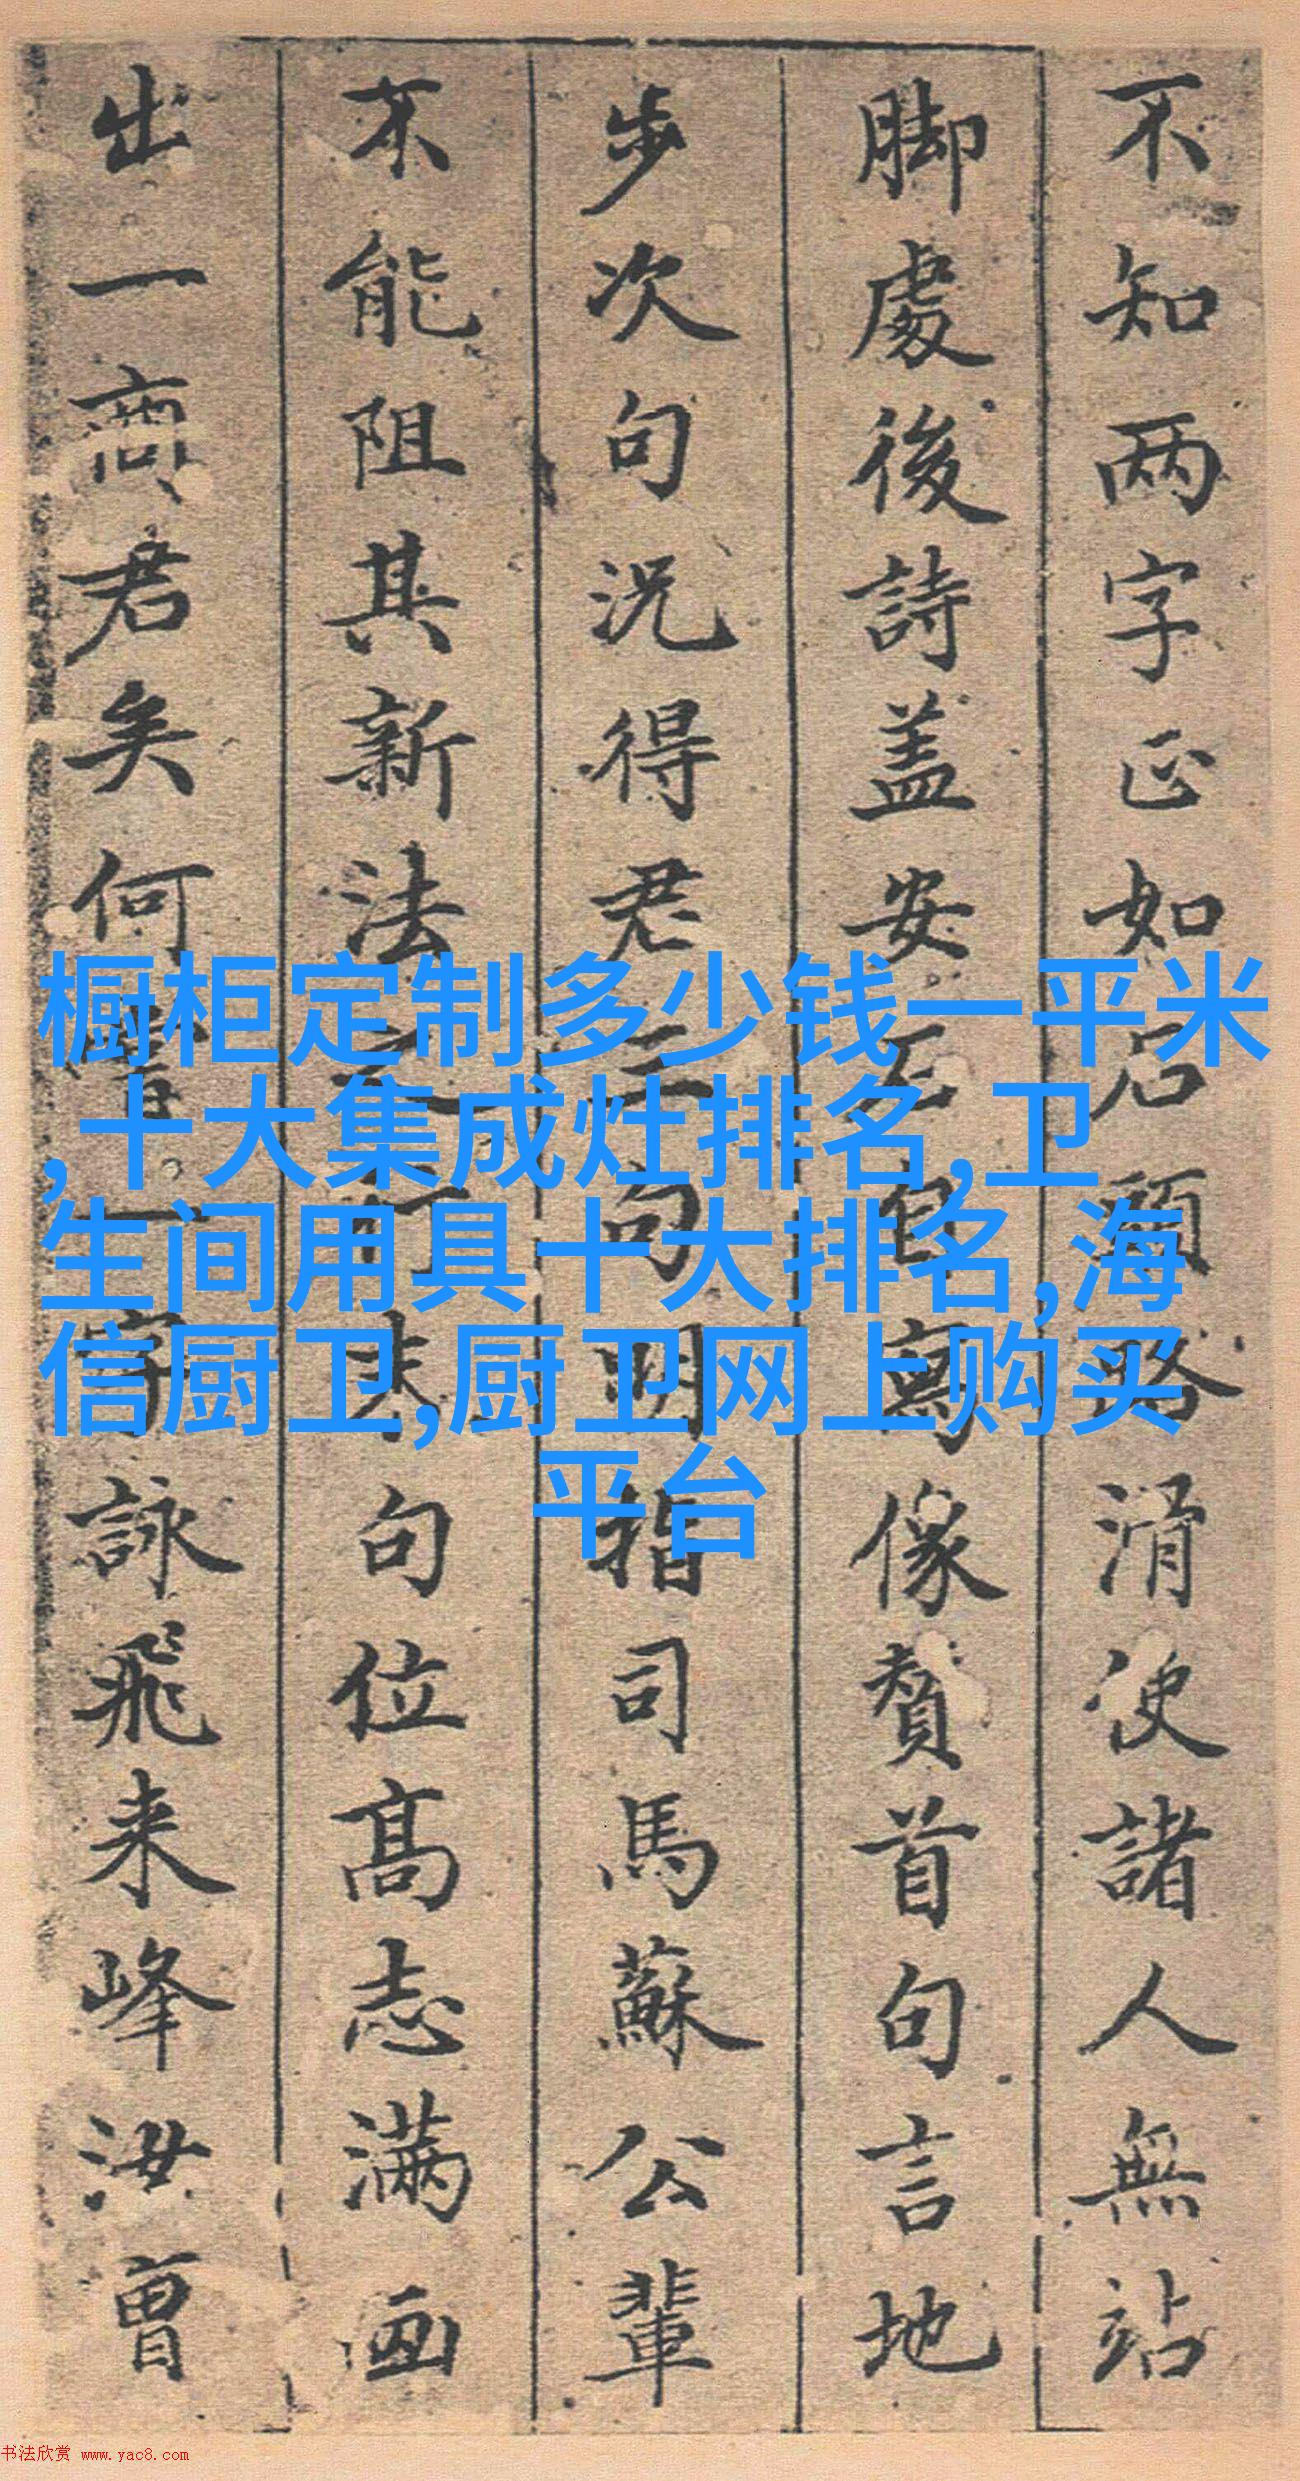 不知两字正如石頭路滑使諸人無站
脚處後詩盖安石自寫像贊首句言地
步次句況得君三句明指司馬蘇公輩
不能阻其新法之行末句位高志滿画
出一商君矣何一字詠飛来峰汝曾
橱柜定制多少钱一平米
,十大集成灶排名,卫
生间用具十大排名,海
信厨卫,厨卫网上购买
平台
书法欣赏 www.yac8.com